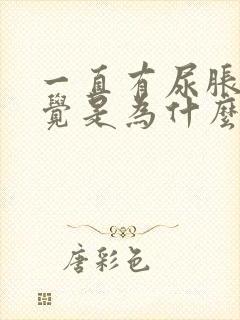 一直有尿脹
覺是為什麼
唐彩色